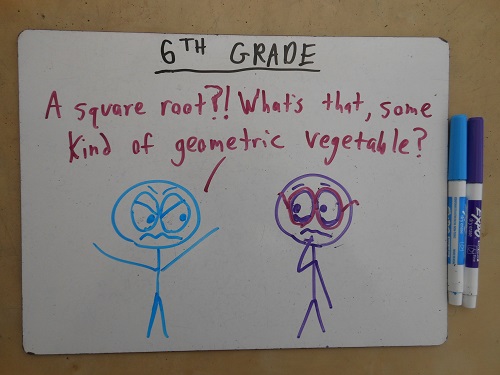 6TH GRADE
A square root?! What's that, some
kind of geometric vegetable?
EXPO